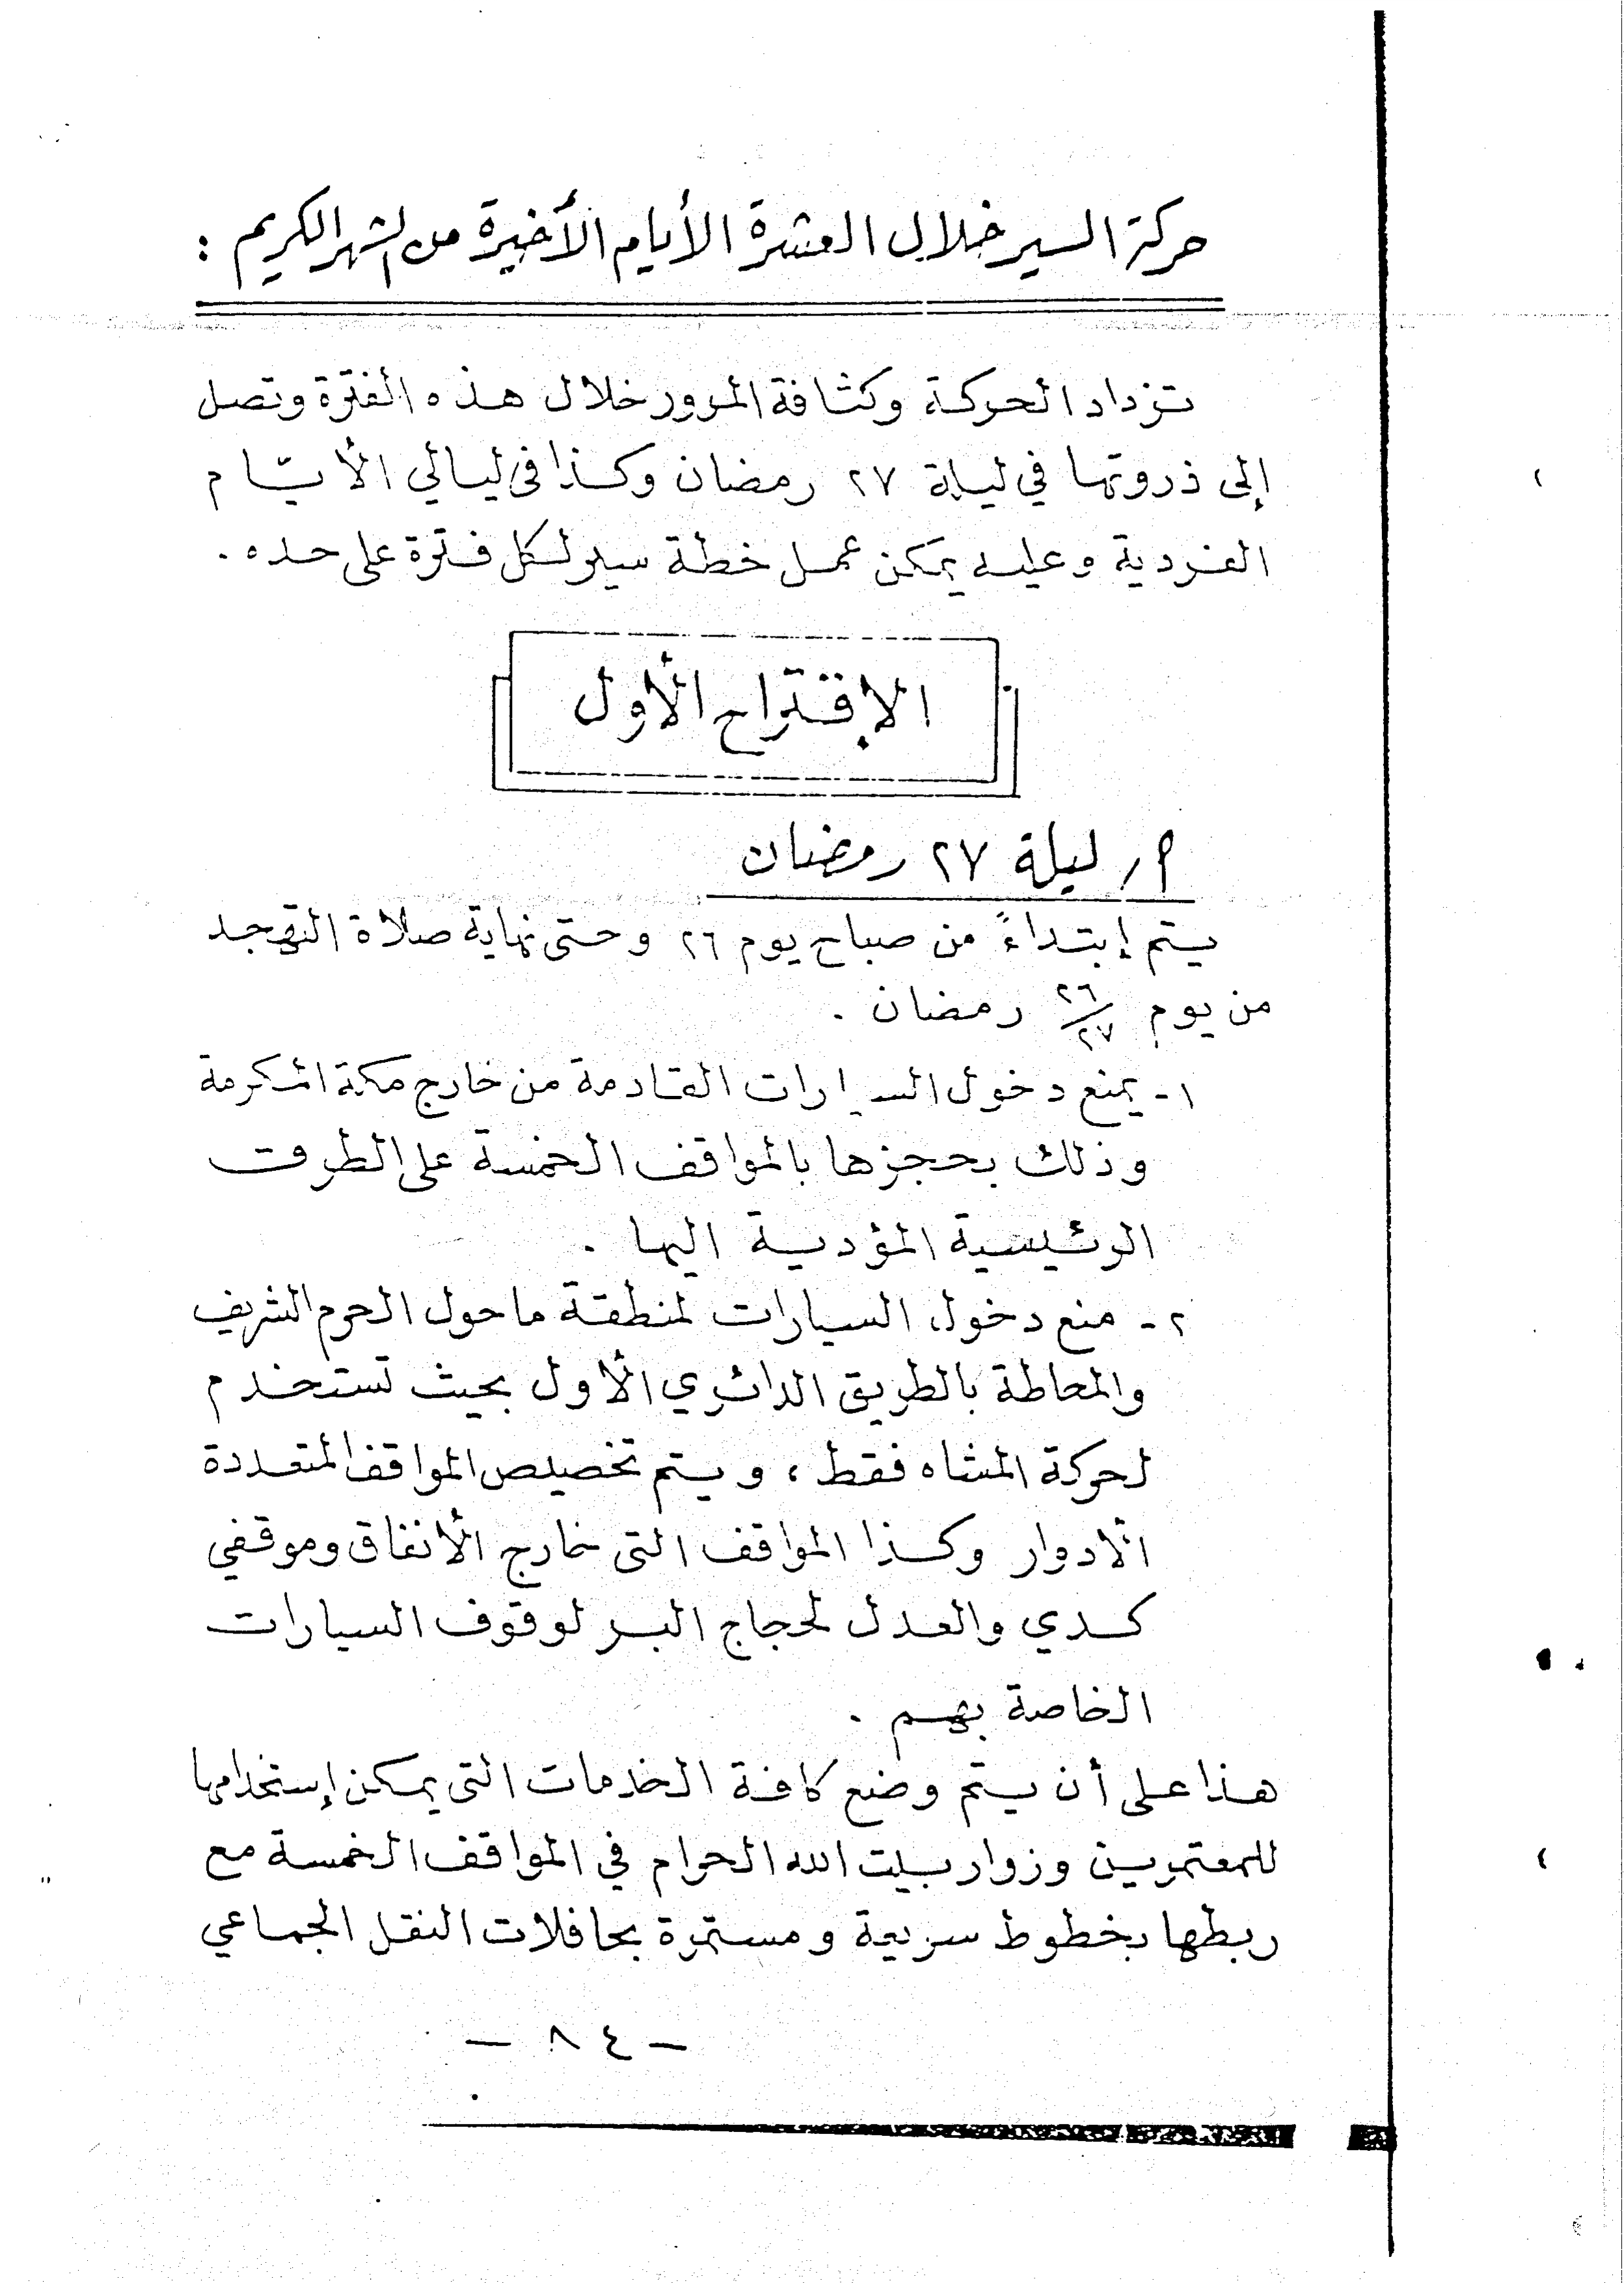 حركة السير خلال العشرة الأيام الأخيرة من الشهر الكريم :
تزداد الحركة وكثافة المرور خلال هذه الفترة وتصل
إلى ذروتها في ليلة ٢٧ رمضان وكذا فى ليالي الأيّام
الفردية وعليه يمكن عمل خطة سير لكل فترة على حده .
الإقتراح الأول
أ / ليلة ٢٧ رمضان
يتم إبتداءً من صباح يوم ٢٦ وحتى نهاية صلاة التهجد
من يوم ٢٦/٢٧ رمضان .
١ - يمنع دخول السيارات القادمة من خارج مكة المكرمة
وذلك بحجزها بالمواقف الخمسة على الطرق
الرئيسية المؤدية اليها .
٢ - منع دخول السيارات لمنطقة ما حول الحرم الشريف
والمحاطة بالطريق الدائري الأول بحيث تستخدم
لحركة المشاه فقط ، ويتم تخصيص المواقف المتعددة
الأدوار وكذا المواقف التى خارج الأنفاق وموقفي
كدي والعدل لحجاج البر لوقوف السيارات
الخاصة بهم .
هذا على أن يتم وضع كافة الخدمات التى يمكن إستخدامها
للمعتمرين وزوار بيت الله الحرام في المواقف الخمسة مع
ربطها بخطوط سريعة ومستمرة بحافلات النقل الجماعي
- ٨٤ -